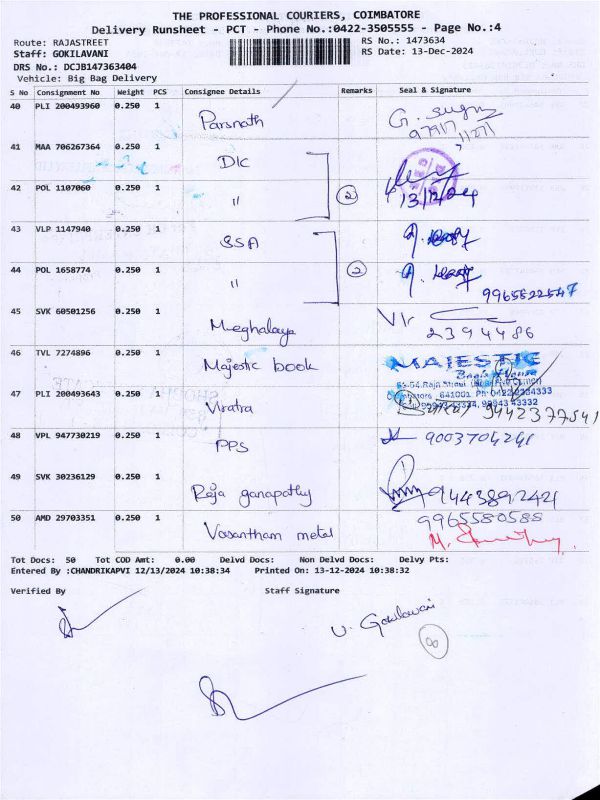 THE PROFESSIONAL COURIERS, COIMBATORE
Delivery Runsheet - PCT - Phone No.:0422-3505555 - Page No.:4
Route: RAJASTREET RS No.: 1473634
Staff: GOKILAVANI RS Date: 13-Dec-2024
DRS No.: DCJB147363404
Vehicle: Big Bag Delivery
S No Consignment No Weight PCS Consignee Details Remarks Seal & Signature
40 PLI 200493960 0.250 1 Parsnath
41 MAA 706267364 0.250 1 DIC
42 POL 1107060 0.250 1 " 2 13/12/24
43 VLP 1147940 0.250 1 SSA
44 POL 1658774 0.250 1 " 2 9965522547
45 SVK 60501256 0.250 1 Meghalaya 2394486
46 TVL 7274896 0.250 1 Majestic book MAJESTIC
Book House
47 PLI 200493643 0.250 1 Viratra 9442377541
48 VPL 947730219 0.250 1 PPS 9003704241
49 SVK 30236129 0.250 1 Raja ganapathy 9443892421
50 AMD 29703351 0.250 1 Vasantham metal 9965580588
Tot Docs: 50 Tot COD Amt: 0.00 Delvd Docs: Non Delvd Docs: Delvy Pts:
Entered By :CHANDRIKAPVI 12/13/2024 10:38:34 Printed On: 13-12-2024 10:38:32
Verified By Staff Signature